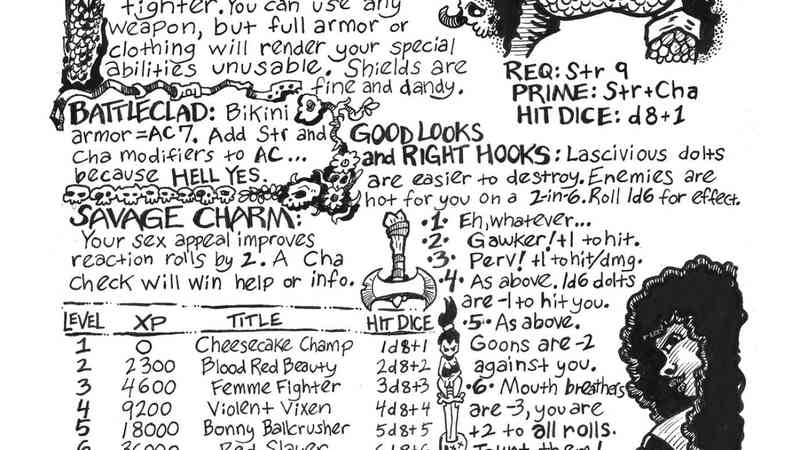 fighter. You can use any
weapon, but full armor or
clothing will render your special
abilities unusable. Shields are
fine and dandy.
REQ: Str 9
PRIME: Str+Cha
HIT DICE: d8+1
BATTLECLAD: Bikini
armor=AC 7. Add Str and
Cha modifiers to AC...
because HELL YES.
GOOD LOOKS
and RIGHT HOOKS: Lascivious dolts
are easier to destroy. Enemies are
hot for you on a 2-in-6. Roll 1d6 for effect.
SAVAGE CHARM:
Your sex appeal improves
reaction rolls by 2. A Cha
check will win help or info.
•1• Eh, whatever...
•2• Gawker! +1 to hit.
•3• Perv! +1 to hit/dmg.
•4• As above. 1d6 dolts
are -1 to hit you.
•5• As above.
Goons are -2
against you.
•6• Mouth breathers
are -3, you are
+2 to all rolls.
Taunt them!
LEVEL XP TITLE HIT DICE
1 0 Cheesecake Champ 1d8+1
2 2300 Blood Red Beauty 2d8+2
3 4600 Femme Fighter 3d8+3
4 9200 Violent Vixen 4d8+4
5 18000 Bonny Ballcrusher 5d8+5
6 36000 Red Slayer 6d8+6